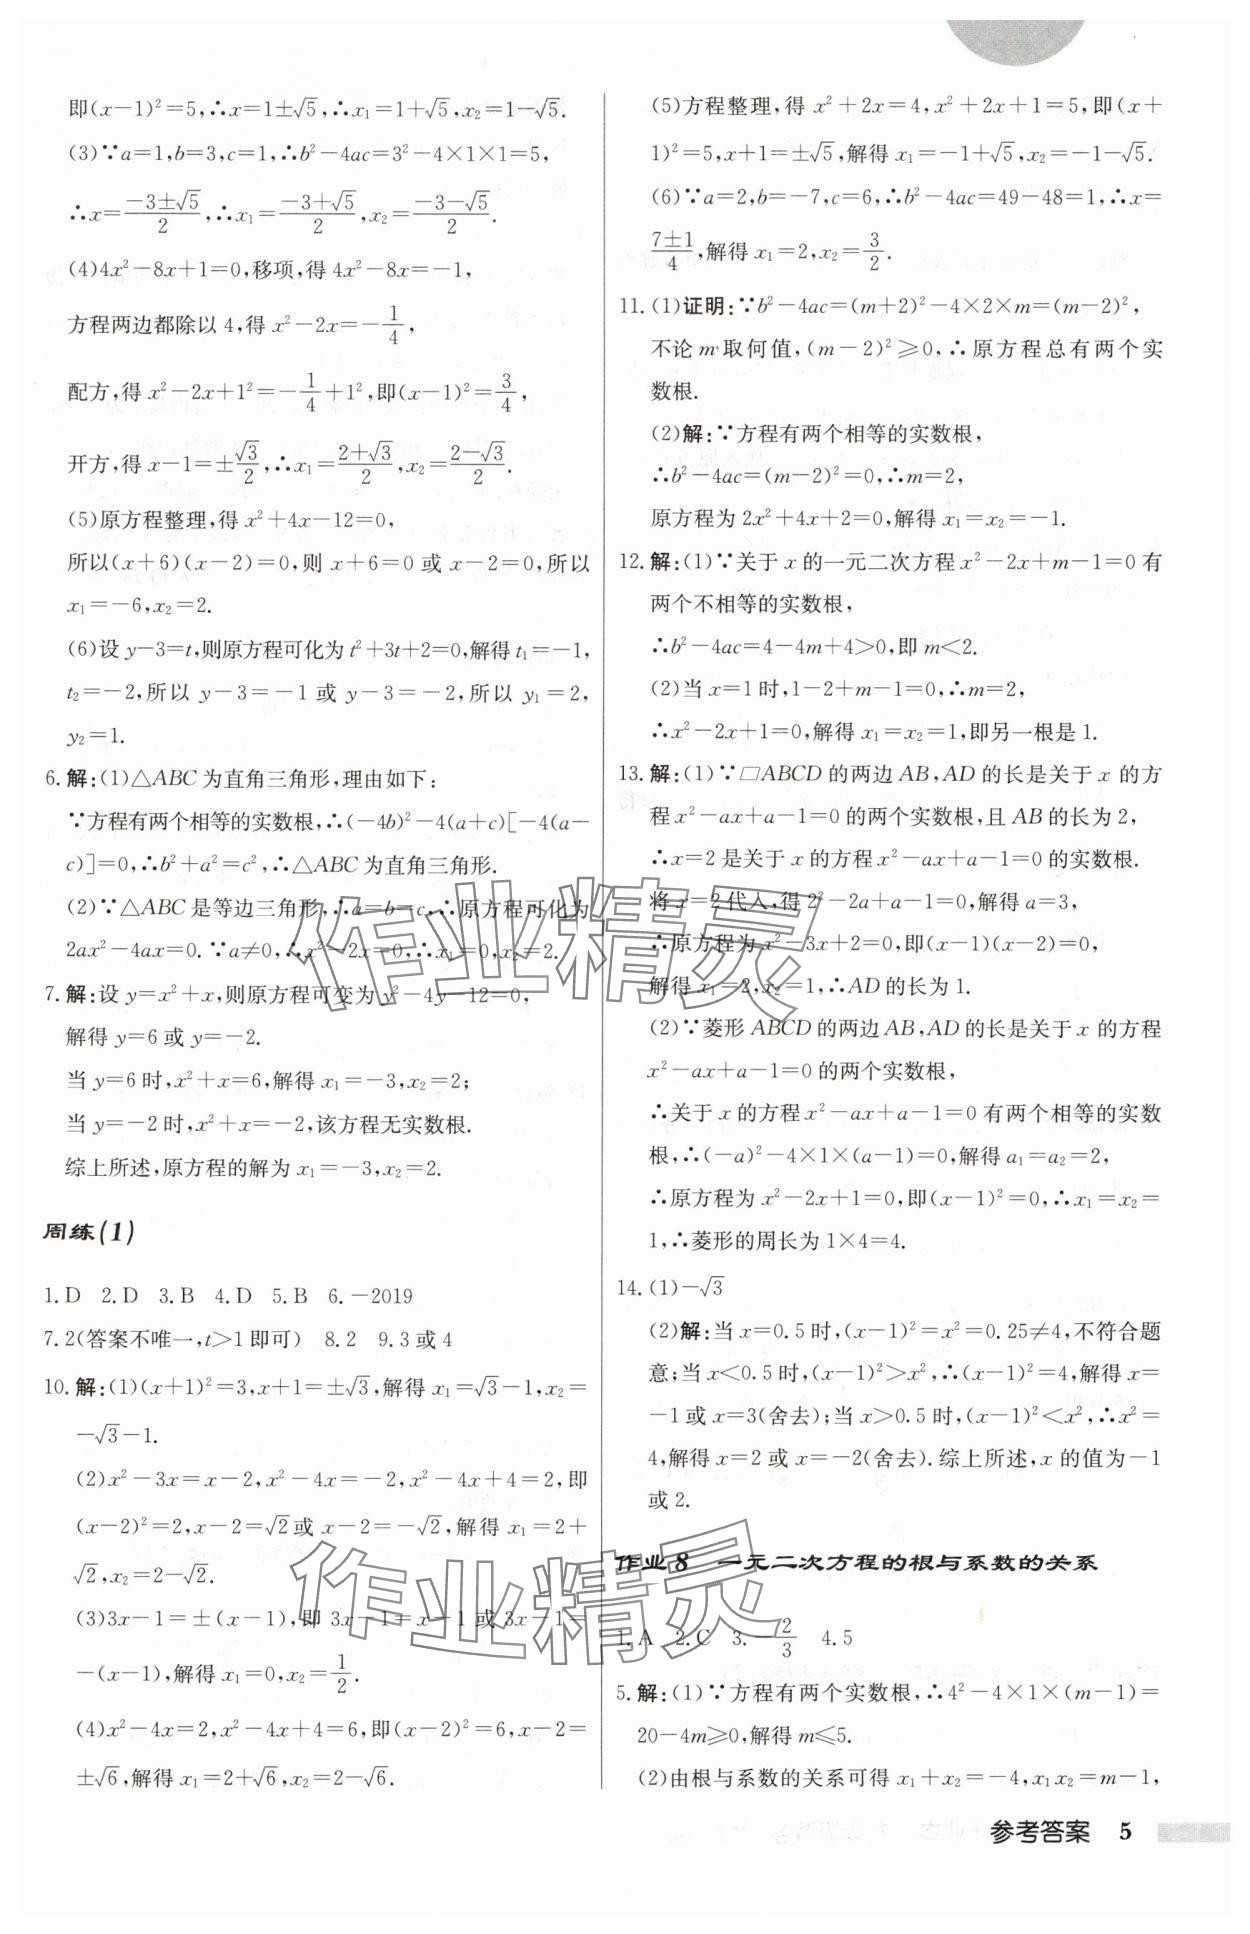 即(x-1)²=5,∴x=1±√5,∴x₁=1+√5,x₂=1-√5.
(3)∵a=1,b=3,c=1,∴b²-4ac=3²-4×1×1=5,
∴x=(-3±√5)/2,∴x₁=(-3+√5)/2,x₂=(-3-√5)/2.
(4)4x²-8x+1=0,移项,得 4x²-8x=-1,
方程两边都除以 4,得 x²-2x=-1/4,
配方,得 x²-2x+1²=-1/4+1²,即(x-1)²=3/4,
开方,得 x-1=±√3/2,∴x₁=(2+√3)/2,x₂=(2-√3)/2.
(5)原方程整理,得 x²+4x-12=0,
所以(x+6)(x-2)=0,则 x+6=0 或 x-2=0,所以
x₁=-6,x₂=2.
(6)设 y-3=t,则原方程可化为 t²+3t+2=0,解得 t₁=-1,
t₂=-2,所以 y-3=-1 或 y-3=-2,所以 y₁=2,
y₂=1.
6.解:(1)△ABC 为直角三角形,理由如下:
∵方程有两个相等的实数根,∴(-4b)²-4(a+c)[-4(a-
c)]=0,∴b²+a²=c²,∴△ABC 为直角三角形.
(2)∵△ABC 是等边三角形,∴a=b=c,∴原方程可化为
2ax²-4ax=0.∵a≠0,∴x²-2x=0,∴x₁=0,x₂=2.
7.解:设 y=x²+x,则原方程可变为 y²-4y-12=0,
解得 y=6 或 y=-2.
当 y=6 时,x²+x=6,解得 x₁=-3,x₂=2;
当 y=-2 时,x²+x=-2,该方程无实数根.
综上所述,原方程的解为 x₁=-3,x₂=2.
周练(1)
1.D 2.D 3.B 4.D 5.B 6.-2019
7.2(答案不唯一,t>1 即可) 8.2 9.3 或 4
10.解:(1)(x+1)²=3,x+1=±√3,解得 x₁=√3-1,x₂=
-√3-1.
(2)x²-3x=x-2,x²-4x=-2,x²-4x+4=2,即
(x-2)²=2,x-2=√2或 x-2=-√2,解得 x₁=2+
√2,x₂=2-√2.
(3)3x-1=±(x-1),即 3x-1=x-1 或 3x-1=
-(x-1),解得 x₁=0,x₂=1/2.
(4)x²-4x=2,x²-4x+4=6,即(x-2)²=6,x-2=
±√6,解得 x₁=2+√6,x₂=2-√6.
(5)方程整理,得 x²+2x=4,x²+2x+1=5,即(x+
1)²=5,x+1=±√5,解得 x₁=-1+√5,x₂=-1-√5.
(6)∵a=2,b=-7,c=6,∴b²-4ac=49-48=1,∴x=
(7±1)/4,解得 x₁=2,x₂=3/2.
11.(1)证明:∵b²-4ac=(m+2)²-4×2×m=(m-2)²,
不论 m 取何值,(m-2)²≥0,∴原方程总有两个实
数根.
(2)解:∵方程有两个相等的实数根,
∴b²-4ac=(m-2)²=0,∴m=2,
原方程为 2x²+4x+2=0,解得 x₁=x₂=-1.
12.解:(1)∵关于 x 的一元二次方程 x²-2x+m-1=0 有
两个不相等的实数根,
∴b²-4ac=4-4m+4>0,即 m<2.
(2)当 x=1 时,1-2+m-1=0,∴m=2,
∴x²-2x+1=0,解得 x₁=x₂=1,即另一根是 1.
13.解:(1)∵□ABCD 的两边 AB,AD 的长是关于 x 的方
程 x²-ax+a-1=0 的两个实数根,且 AB 的长为 2,
∴x=2 是关于 x 的方程 x²-ax+a-1=0 的实数根.
将 x=2 代入,得 2²-2a+a-1=0,解得 a=3,
∴原方程为 x²-3x+2=0,即(x-1)(x-2)=0,
解得 x₁=2,x₂=1,∴AD 的长为 1.
(2)∵菱形 ABCD 的两边 AB,AD 的长是关于 x 的方程
x²-ax+a-1=0 的两个实数根,
∴关于 x 的方程 x²-ax+a-1=0 有两个相等的实数
根,∴(-a)²-4×1×(a-1)=0,解得 a₁=a₂=2,
∴原方程为 x²-2x+1=0,即(x-1)²=0,∴x₁=x₂=
1,∴菱形的周长为 1×4=4.
14.(1)-√3
(2)解:当 x=0.5 时,(x-1)²=x²=0.25≠4,不符合题
意;当 x<0.5 时,(x-1)²>x²,∴(x-1)²=4,解得 x=
-1 或 x=3(舍去);当 x>0.5 时,(x-1)²<x²,∴x²=
4,解得 x=2 或 x=-2(舍去).综上所述,x 的值为-1
或 2.
作业 8 一元二次方程的根与系数的关系
1.A 2.C 3.-2/3 4.5
5.解:(1)∵方程有两个实数根,∴4²-4×1×(m-1)=
20-4m≥0,解得 m≤5.
(2)由根与系数的关系可得 x₁+x₂=-4,x₁x₂=m-1,
参考答案 5
作业精灵
作业精灵